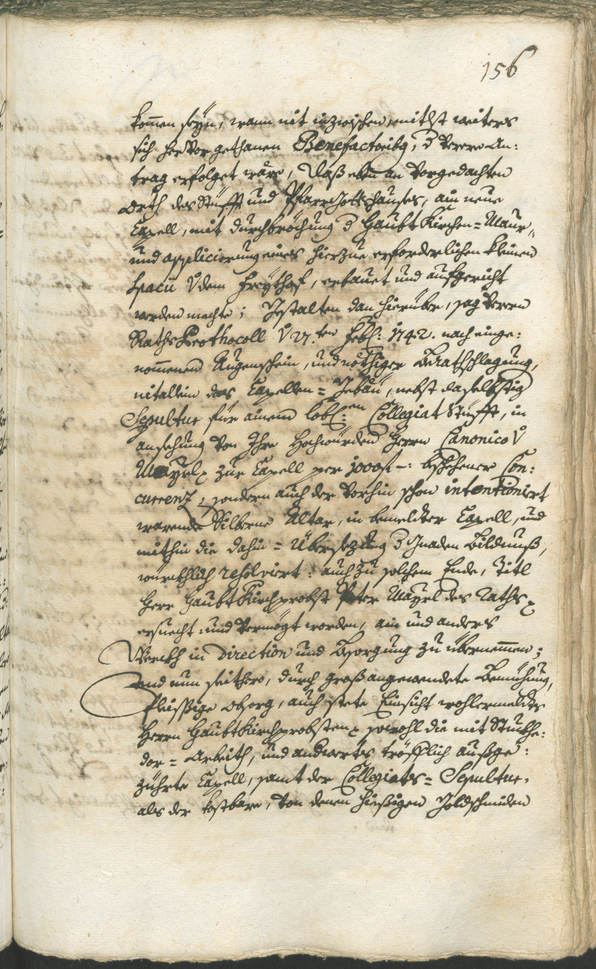 156
kom̄en seÿn, wann nit inzwischen, mitlst weiters
sich hervorgethanen Benefactoribg, d verere An:
trag erfolget wäre, daß eben an vorgedachten
orth des Stüfft und Pfarrgottshauses, ain neue
Capell, mit durchbrechung d Haubt Kirchen=Maur,
und applicierung eines hierzue erforderlichen kleinen
spacii v dem Freÿthof, erbauet und aufgericht
werden mechte; Gestalten dan hierüber, sag deren
Raths Prothocoll v 27.ten Febr: 1742. nach einge:
nommenem Augenschein, und nöthiger Berathschlagung,
nit allein das Capellen=Gebäu, nebst daselbstig
Sepultur für ainem lobl:en Collegiat Stüfft, in
ansechung von Ihro Hochwürden Herrn Canonico v
Maÿrl zur Capell per 1000 f –: beschechener Con:
currenz, sondern auch der vorhin schon intentioniert
warende Silberne Altar, in bemelter Capell, und
mithin die dahin=Übersezung d Gnaden Bildnuß,
würckhlich resolviert: auch zu solchem Ende, Titl
Herr Haubt Kirchprobst Peter Maÿrl des Raths
ersuecht und vermögt worden, ain und anders
Werckh in Direction und besorgung zu übernemen;
Und nun seithero, durch groß angewendete Bemühung,
fleissige obsorg, auch stete Einsicht wohlermelts
Herrn Haubt Kirchprobsten sowohl die mit Stucka:
dor=Arbeith, und andwerts tröfflich außge:
zührte Capell, samt der Collegiats=Sepultur,
als der kostbare, von denen hiesigen Goldschmiden